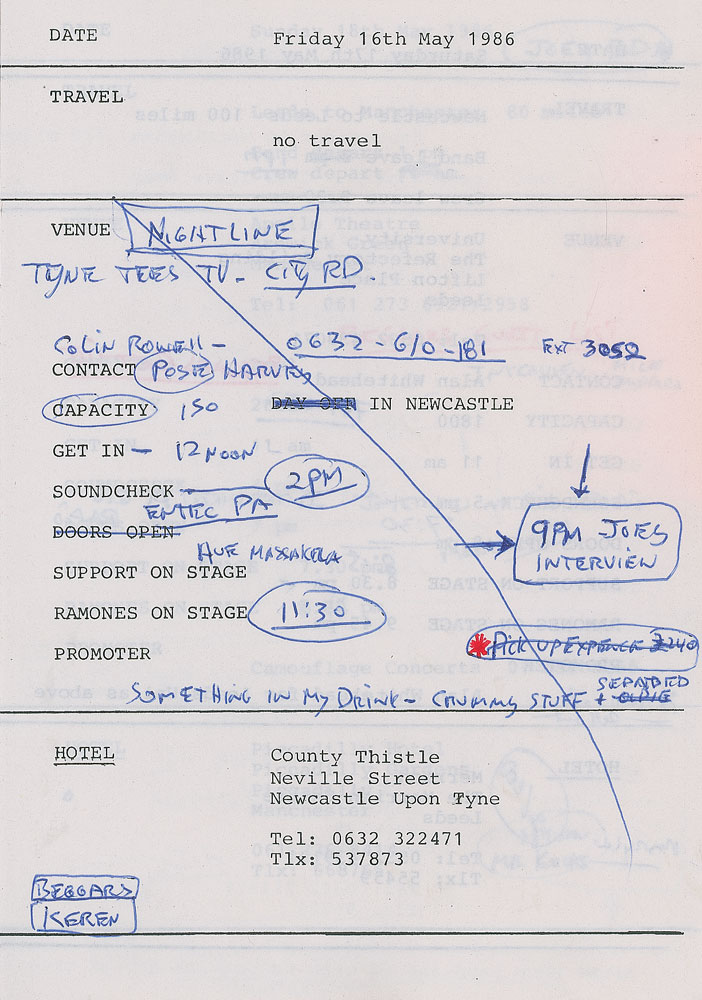 DATE Friday 16th May 1986
TRAVEL
no travel
VENUE NIGHTLINE
TYNE TEES TV - CITY RD.
COLIN ROWELL - 0632-610-181 EXT 3052
CONTACT POSIE HARVEY
CAPACITY 150 DAY OFF IN NEWCASTLE
GET IN - 12 NOON
SOUNDCHECK - 2PM
ENTEC PA
DOORS OPEN
9PM JOEYS
INTERVIEW
HUE MASSAKELA
SUPPORT ON STAGE
RAMONES ON STAGE 11:30
PICK UP EXPENCE 240
PROMOTER
SEPARATED
SOMETHING IN MY DRINK - CRUMMY STUFF +
HOTEL County Thistle
Neville Street
Newcastle Upon Tyne
Tel: 0632 322471
Tlx: 537873
BEGGARS
KEREN